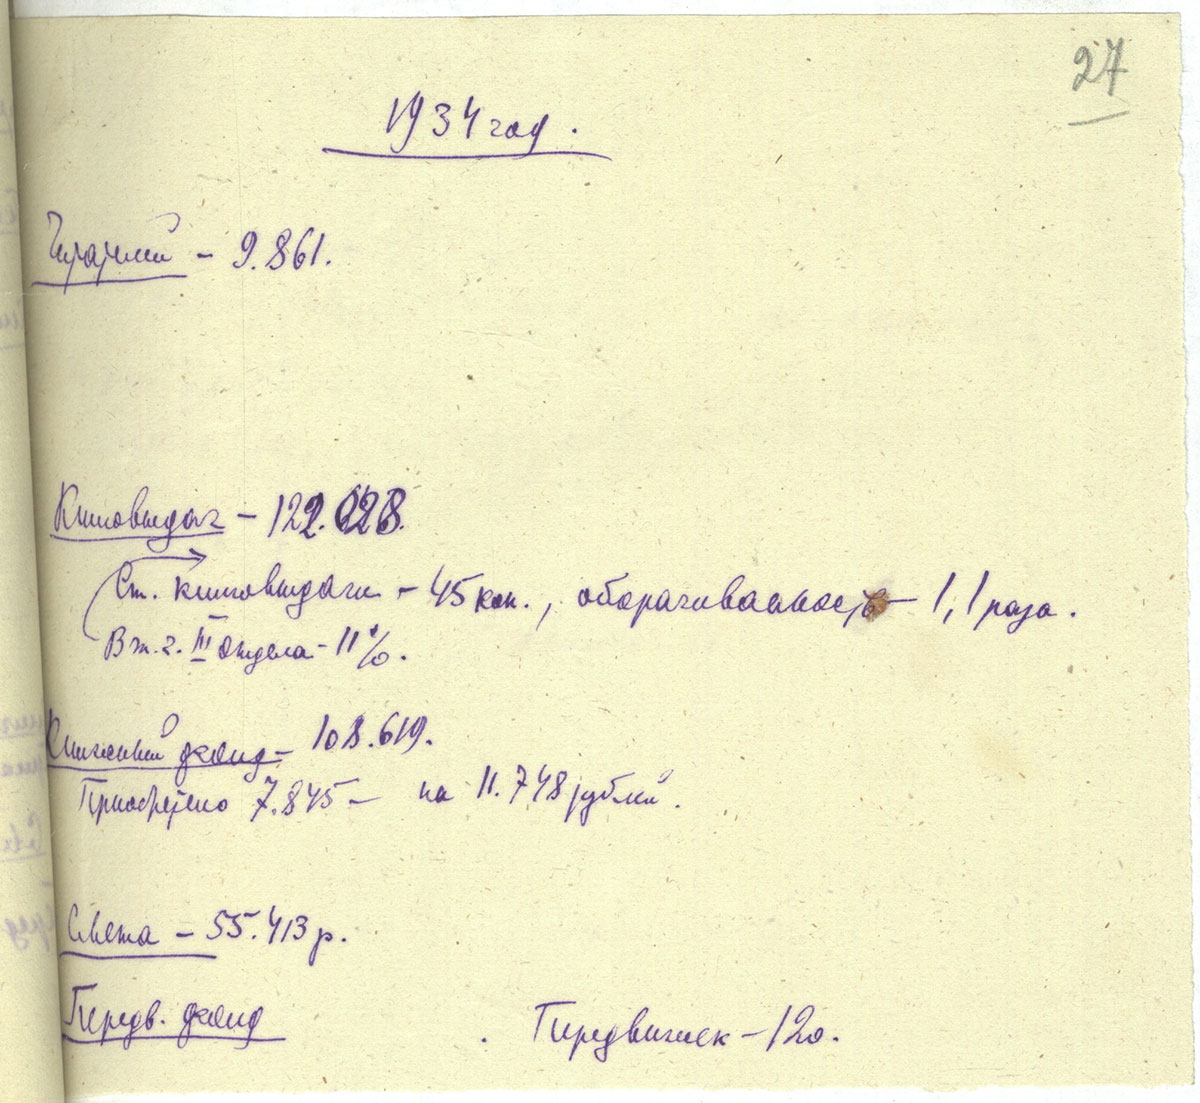 27
1934 год.
Читателей - 9.861.
Книговыдач - 122.028.
Ст. книговыдачи - 45 коп., оборачиваемость - 1,1 раза.
В т.ч. III отдела - 11%.
Книжный фонд - 108.619.
Приобретено 7.845 - на 11.748 рублей.
Смета - 55.413 р.
Передв. фонд . Передвижек - 120.